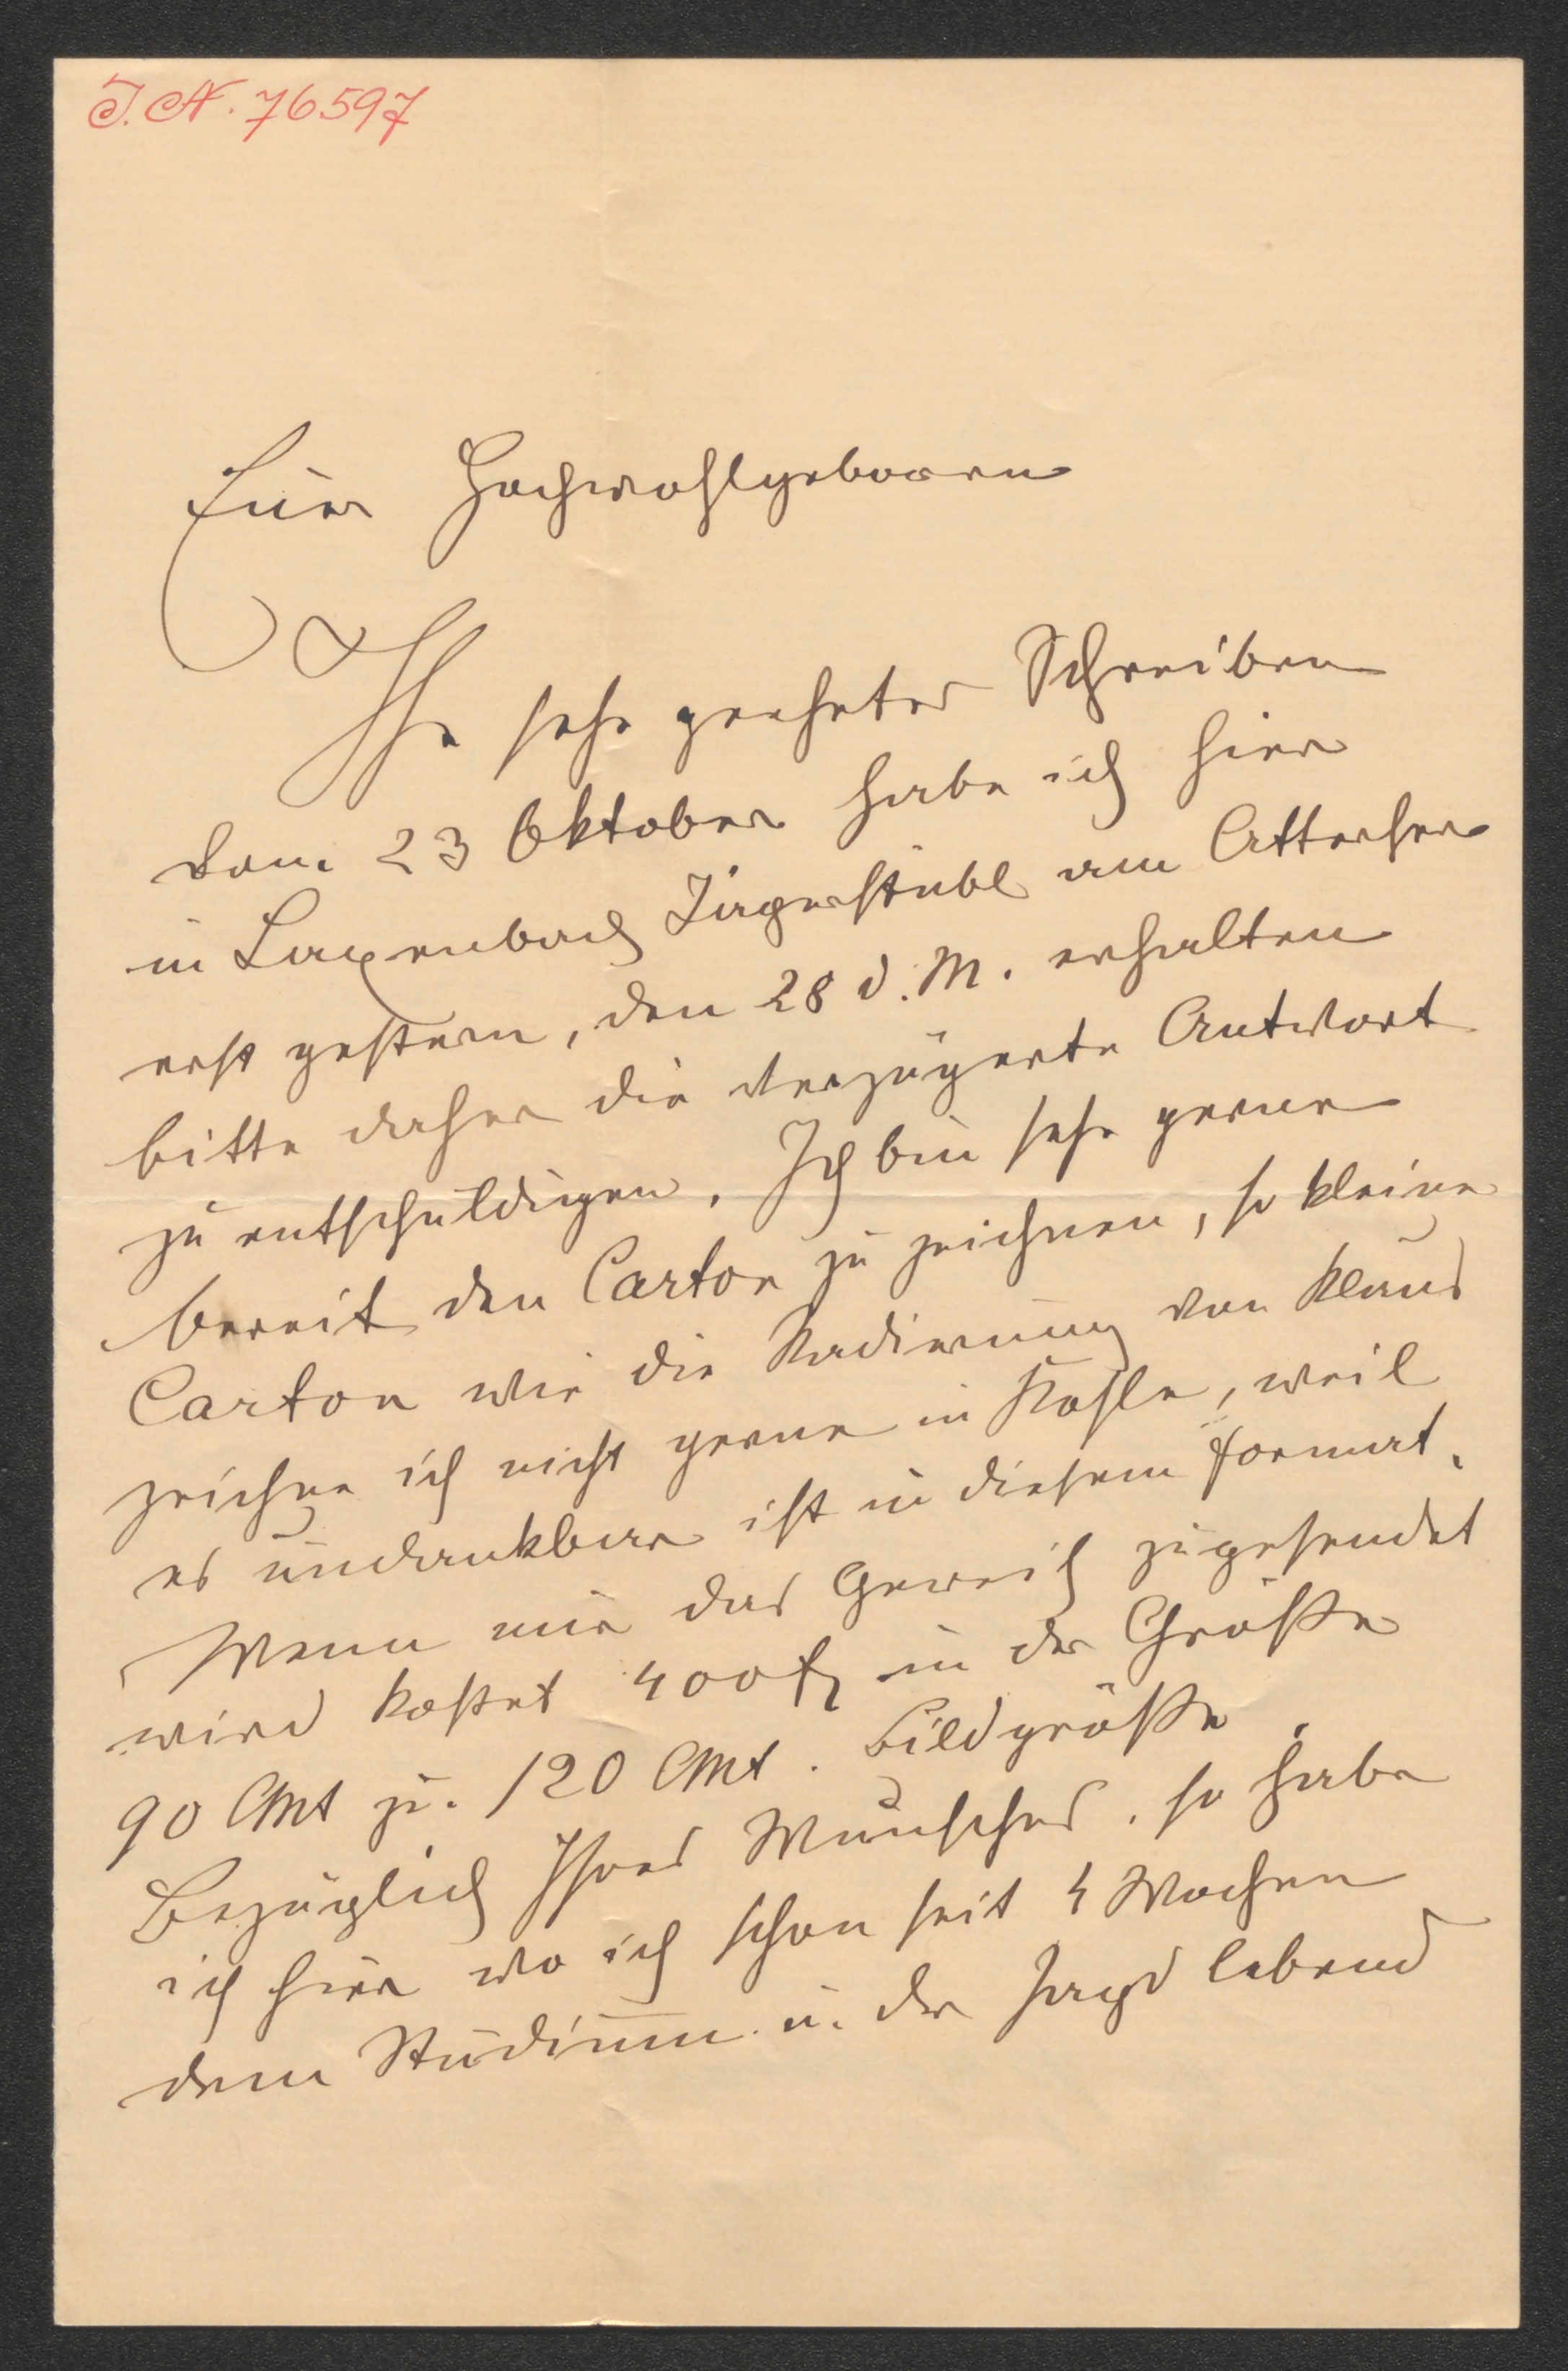 I.N. 76597
Euer Hochwohlgeboren
Ihr sehr geehrtes Schreiben
vom 23 Oktober habe ich hier
in Jägerstübl am Attersee
erst gestern, den 28 d. M. erhalten
bitte daher die verzögerte Antwort
zu entschuldigen. Ich bin sehr gerne
bereit den Carton zu zeichnen, so kleine
Carton wie die Radierung von Klaus
zeichne ich nicht gerne in Kohle, weil
es undankbar ist in diesem Format.
Wenn mir das Geweih zugesendet
wird kostet 400 fl in der Größe
90 Cmt zu 120 Cmt. Bildgröße.
Bezüglich Ihres Wunsches, so habe
ich hier wo ich schon seit 4 Wochen
dem Studium u. der Jagd lebend